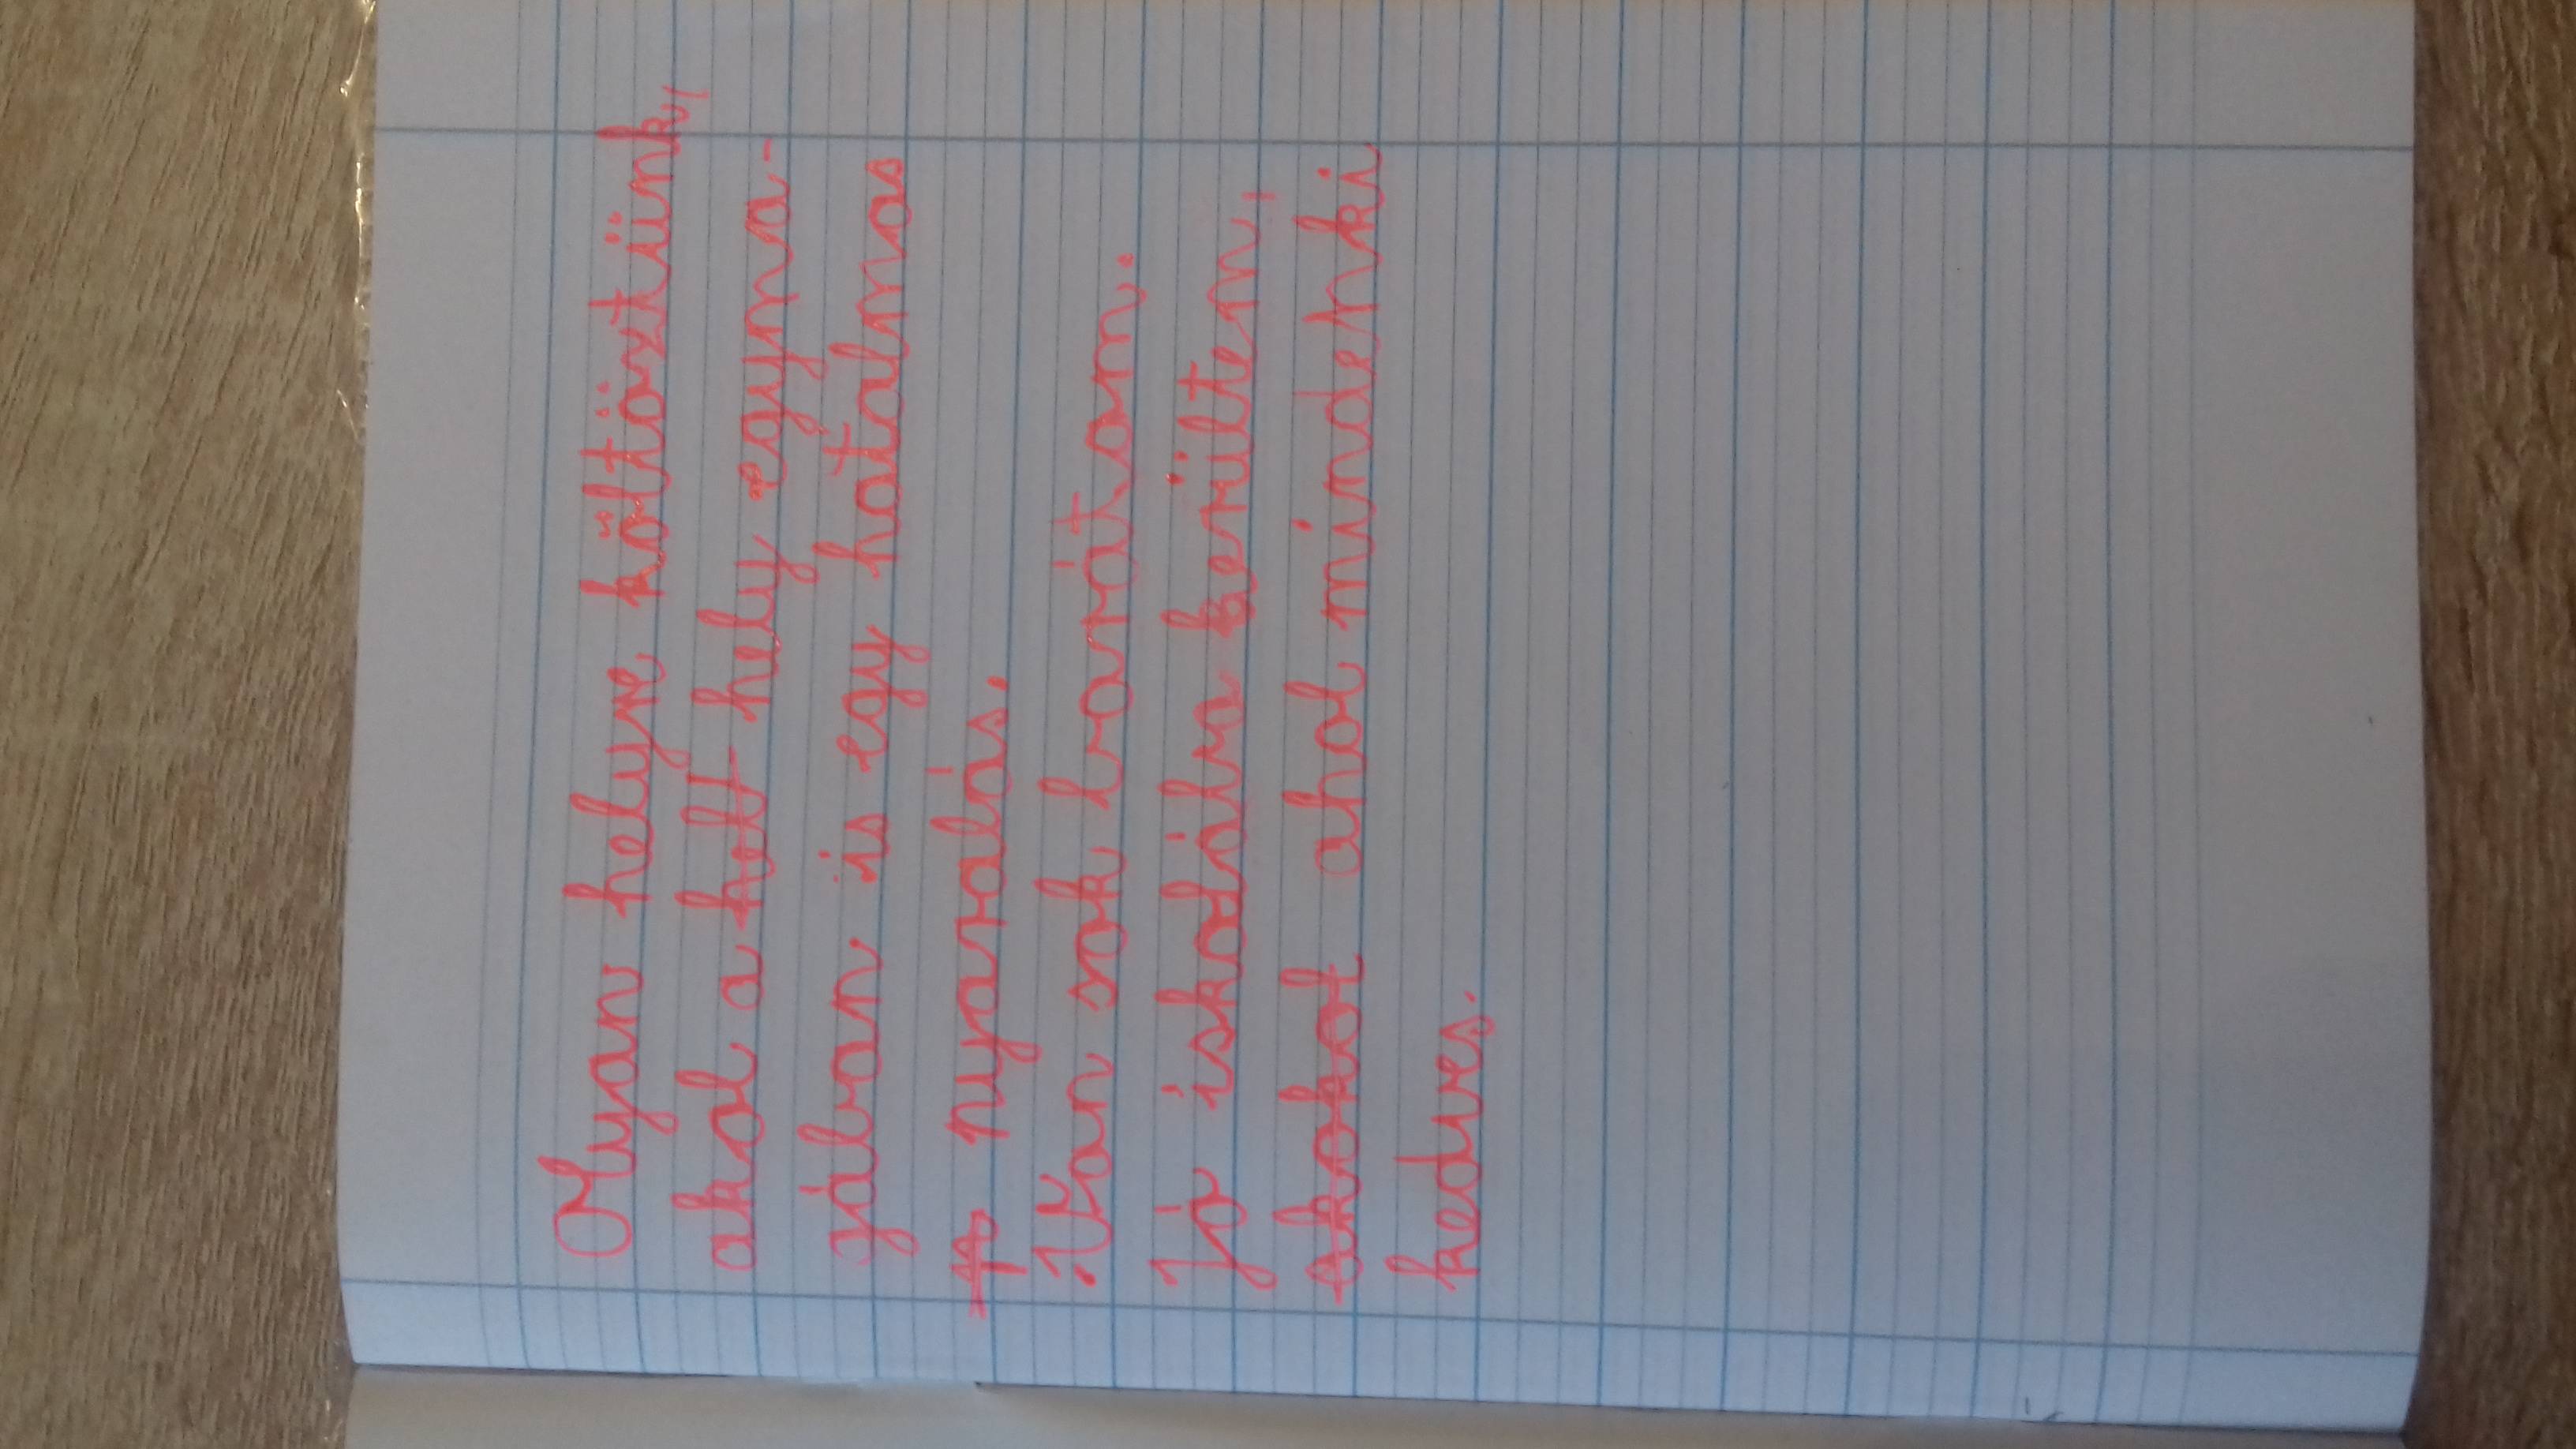 Olyan helyre költöztünk,
ahol a hely egyma-
gában is egy hatalmas
nyaralás.
Van sok barátom.
Jó iskolába kerültem,
ahol mindenki
kedves.